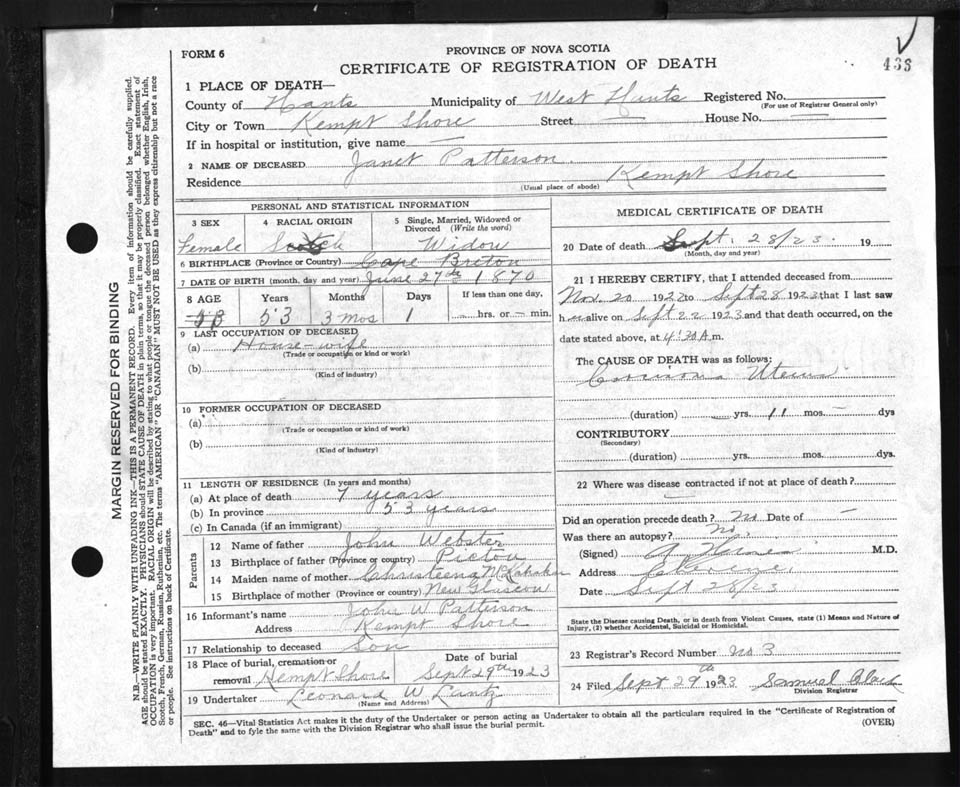 FORM 6
PROVINCE OF NOVA SCOTIA
CERTIFICATE OF REGISTRATION OF DEATH
433
MARGIN RESERVED FOR BINDING
N.B.—WRITE PLAINLY WITH UNFADING INK—THIS IS A PERMANENT RECORD. Every item of information should be carefully supplied.
AGE should be stated EXACTLY. PHYSICIANS should STATE CAUSE OF DEATH in plain terms, so that it may be properly classified. Exact statement of
OCCUPATION is very important. RACIAL ORIGIN will be described by stating to what people or tongue the deceased person belonged whether English, Irish,
Scotch, French, German, Russian, Ruthenian, etc. The terms "AMERICAN" OR "CANADIAN" MUST NOT BE USED as they express citizenship but not a race
or people. See instructions on back of Certificate.
1 PLACE OF DEATH—
County of Hants Municipality of West Hants Registered No.
(For use of Registrar General only)
City or Town Kempt Shore Street — House No. —
If in hospital or institution, give name —
2 NAME OF DECEASED Janet Patterson.
Residence Kempt Shore
(Usual place of abode)
PERSONAL AND STATISTICAL INFORMATION
3 SEX Female
4 RACIAL ORIGIN Scotch
5 Single, Married, Widowed or Divorced (Write the word) Widow
6 BIRTHPLACE (Province or Country) Cape Breton
7 DATE OF BIRTH (month, day and year) June 27th 1870
8 AGE Years Months Days If less than one day,
53 53 3 mos 1 hrs. or — min.
9 LAST OCCUPATION OF DECEASED
(a) House-wife
(Trade or occupation or kind or work)
(b)
(Kind of industry)
10 FORMER OCCUPATION OF DECEASED
(a)
(Trade or occupation or kind of work)
(b)
(Kind of industry)
11 LENGTH OF RESIDENCE (In years and months)
(a) At place of death 7 years
(b) In province 53 years
(c) In Canada (if an immigrant)
Parents
12 Name of father John Webster
13 Birthplace of father (Province or country) Pictou
14 Maiden name of mother Christeena
15 Birthplace of mother (Province or country) New Glascow
16 Informant's name John W Patterson
Address Kempt Shore
17 Relationship to deceased Son
18 Place of burial, cremation or removal Kempt Shore Date of burial Sept 29th 1923
19 Undertaker Leonard W Luntz
(Name and Address)
MEDICAL CERTIFICATE OF DEATH
20 Date of death Sept. 28/23. 19
(Month, day and year)
21 I HEREBY CERTIFY, that I attended deceased from
Nov. 20 1922 to Sept 28 1923 that I last saw
h er alive on Sept 22 1923 and that death occurred, on the
date stated above, at 4:30 A m.
The CAUSE OF DEATH was as follows:
Carcinoma Uterus
(duration) — yrs. 11 mos. — dys
CONTRIBUTORY
(Secondary)
(duration) yrs. mos. dys.
22 Where was disease contracted if not at place of death?
—
Did an operation precede death? No Date of —
Was there an autopsy? No.
(Signed) M.D.
Address
Date Sept 28/23
State the Disease causing Death, or in death from Violent Causes, state (1) Means and Nature of
Injury, (2) whether Accidental, Suicidal or Homicidal.
23 Registrar's Record Number No 3
24 Filed Sept 29th 1923 Samuel Black
Division Registrar
SEC. 46—Vital Statistics Act makes it the duty of the Undertaker or person acting as Undertaker to obtain all the particulars required in the "Certificate of Registration of
Death" and to fyle the same with the Division Registrar who shall issue the burial permit.
(OVER)